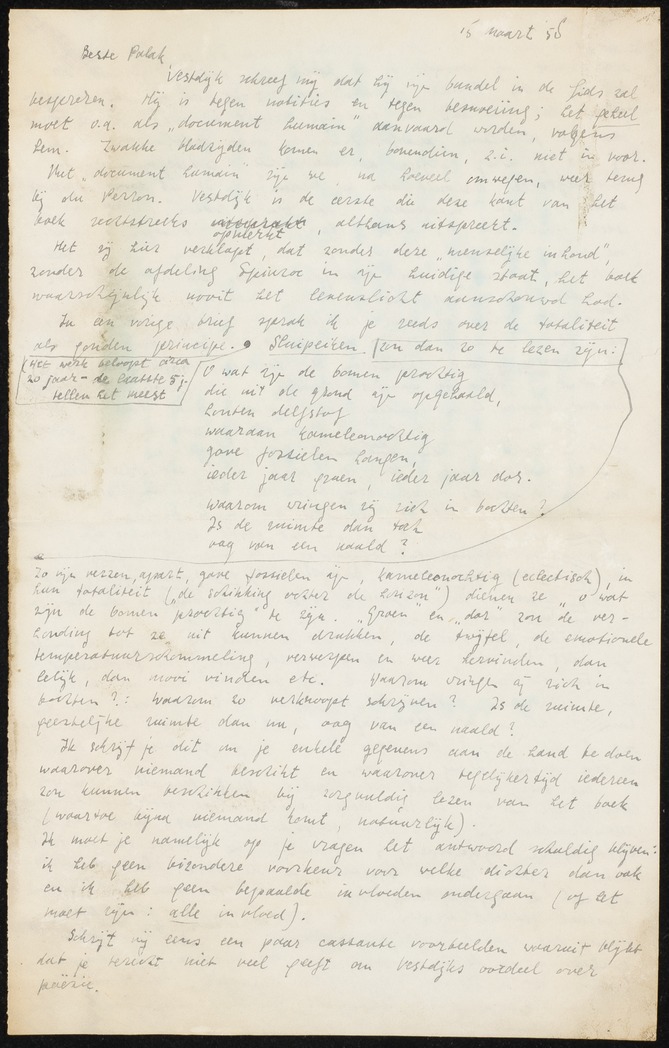 15 maart '58
Beste Polak,
Vestdijk schreef mij dat hij mijn bundel in de Gids zal
bespreken. Hij is tegen notities en tegen besnoeiing; het geheel
moet o.a. als „document humain” aanvaard worden, volgens
hem. Zwakke bladzijden komen er, bovendien, z.i. niet in voor.
Met „document humain” zijn we, na hoeveel omwegen, weer terug
bij du Perron. Vestdijk is de eerste die deze kant van het
boek rechtstreeks opmerkt, althans uitspreekt.
Het zij hier verklapt, dat zonder deze „menselijke inhoud”,
zonder de afdeling in zijn huidige staat, het boek
waarschijnlijk nooit het levenslicht aanschouwd had.
In een vorige brief sprak ik je reeds over de totaliteit
als gouden principe. Sluipeiken. zou dan zo te lezen zijn:
(Het werk beloopt ruim
20 jaar – de laatste 5 j.
tellen het meest
O wat zijn de bomen prachtig
die uit de grond zijn opgehaald,
houten delfstof
waaraan kameleonachtig
gave fossielen hangen,
ieder jaar groen, ieder jaar dor.
waarom wringen zij zich in bochten?
Is de ruimte dan toch
oog van een naald?
Zo mijn verzen, apart, gave fossielen zijn, kameleonachtig (eclectisch), in
hun totaliteit („de schikking achter de horizon”) dienen ze „o wat
zijn de bomen prachtig” te zijn. „Groen” en „dor” zou de ver-
houding tot ze uit kunnen drukken, de twijfel, de emotionele
temperatuurschommeling, verwerpen en weer hervinden, dan
lelijk, dan mooi vinden etc. Waarom wringen zij zich in
bochten?: Waarom zo verknoopt schrijven? Is de ruimte,
geestelijke ruimte dan nu, oog van een naald?
Ik schrijf je dit om je enkele gegevens aan de hand te doen
waarover niemand beschikt en waarover tegelijkertijd iedereen
zou kunnen beschikken bij zorgvuldig lezen van het boek
(waartoe bijna niemand komt, natuurlijk).
Ik moet je namelijk op je vragen het antwoord schuldig blijven:
ik heb geen bizondere voorkeur voor welke dichter dan ook
en ik heb geen bepaalde invloeden ondergaan (of het
moet zijn: alle invloed).
Schrijf mij eens een paar cassante voorbeelden waaruit blijkt
dat je terecht niet veel geeft om Vestdijks oordeel over
poëzie.